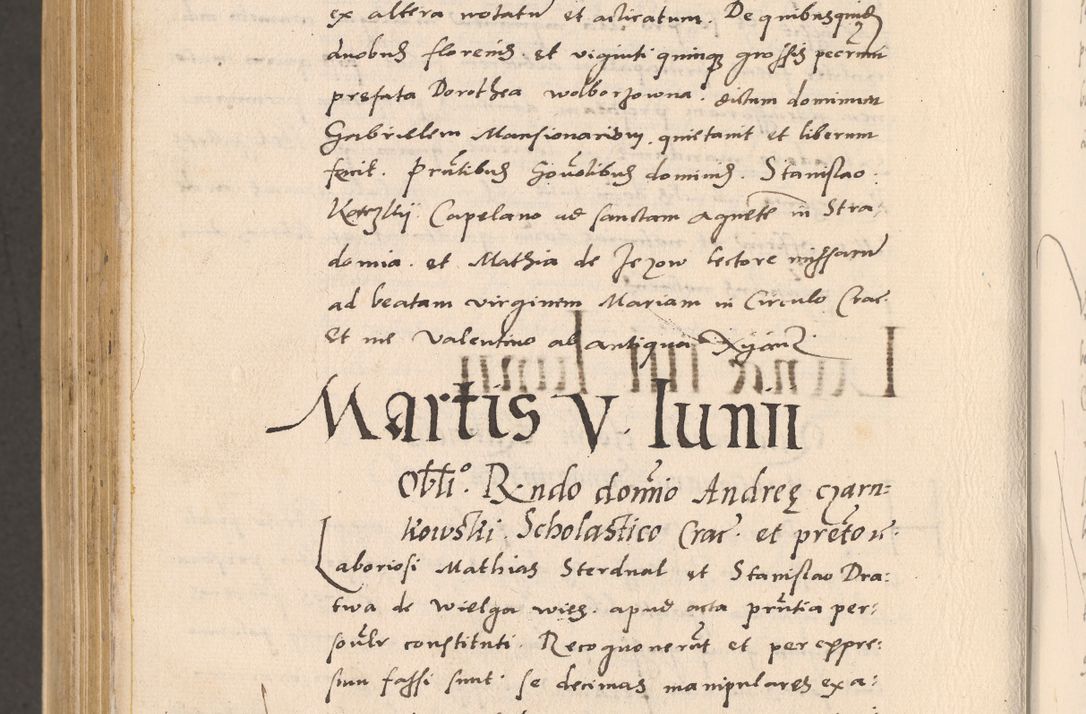 ex altera notatum et acticatum. De quibusquidem
duobus florenis et viginti quinque grossis pecuniarum
prefata Dorothea wolborzowna dictum dominum
Gabrielem Mansionarium quietavit et liberum
fecit. Pntibus honolibus dominis Stanislao
Koczkij Capelano ad sanctam Agnetem in Stra:
domia et Mathia de Jezow lectore missarum
ad beatam virginem Mariam in Circulo Crac.
Et me Valentino ab antiqua
Martis V. Iunii
Oblio. Rndo domino Andreę czarn=
kowski Scholastico Crac. et
Laboriosi Mathias Sterdnal et Stanislao Dra:
twa de Wielga wies apud acta pntia per:
sonlr constituti. Recoquonerunt et per expre:
sum fassi sunt se decimas manipulares ex a: